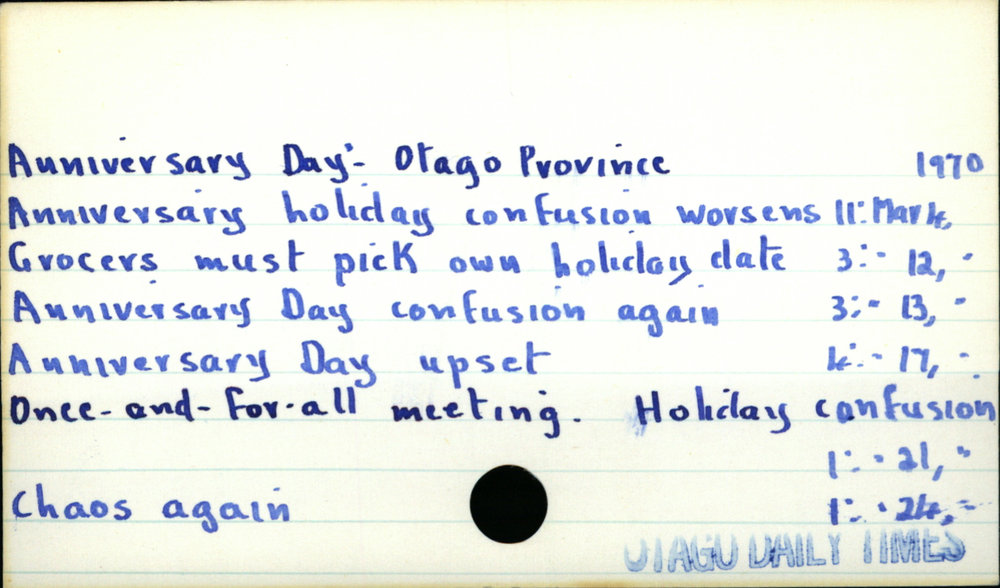 Anniversary Day:- Otago Province 1970
Anniversary holiday confusion worsens 11:Mar 4,
Grocers must pick own holiday date 3:- 12, "
Anniversary Day confusion again 3:- 13, "
Anniversary Day upset 4:- 17, "
Once-and-for-all meeting. Holiday confusion
1:- 21, "
Chaos again 1:- 24, "
OTAGO DAILY TIMES